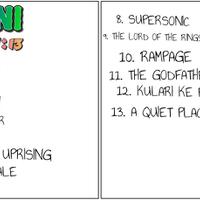 NI
:13
R
UPRISING
ALE
8. SUPERSONIC
9. THE LORD OF THE RINGS
10. RAMPAGE
11. THE GODFATH
12. KULARI KE
13. A QUIET PLAC